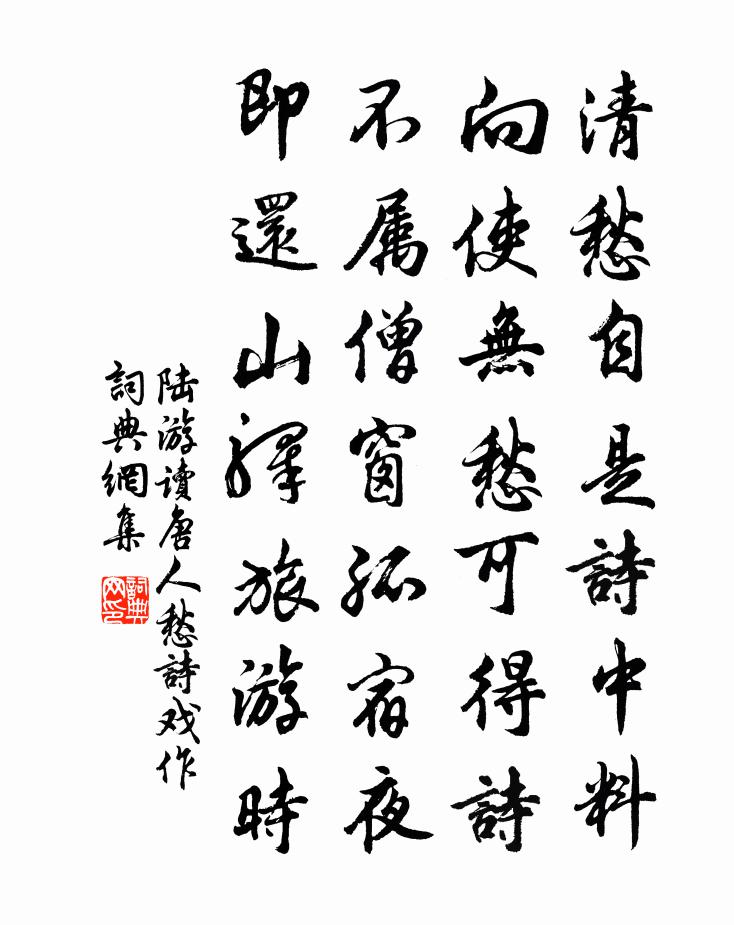 清愁自是詩中料
向使無愁可得詩
不属僧窗孤宿夜
即還山驛旅游時
陆游讀唐人愁詩戏作
詞典網集
詞典网印